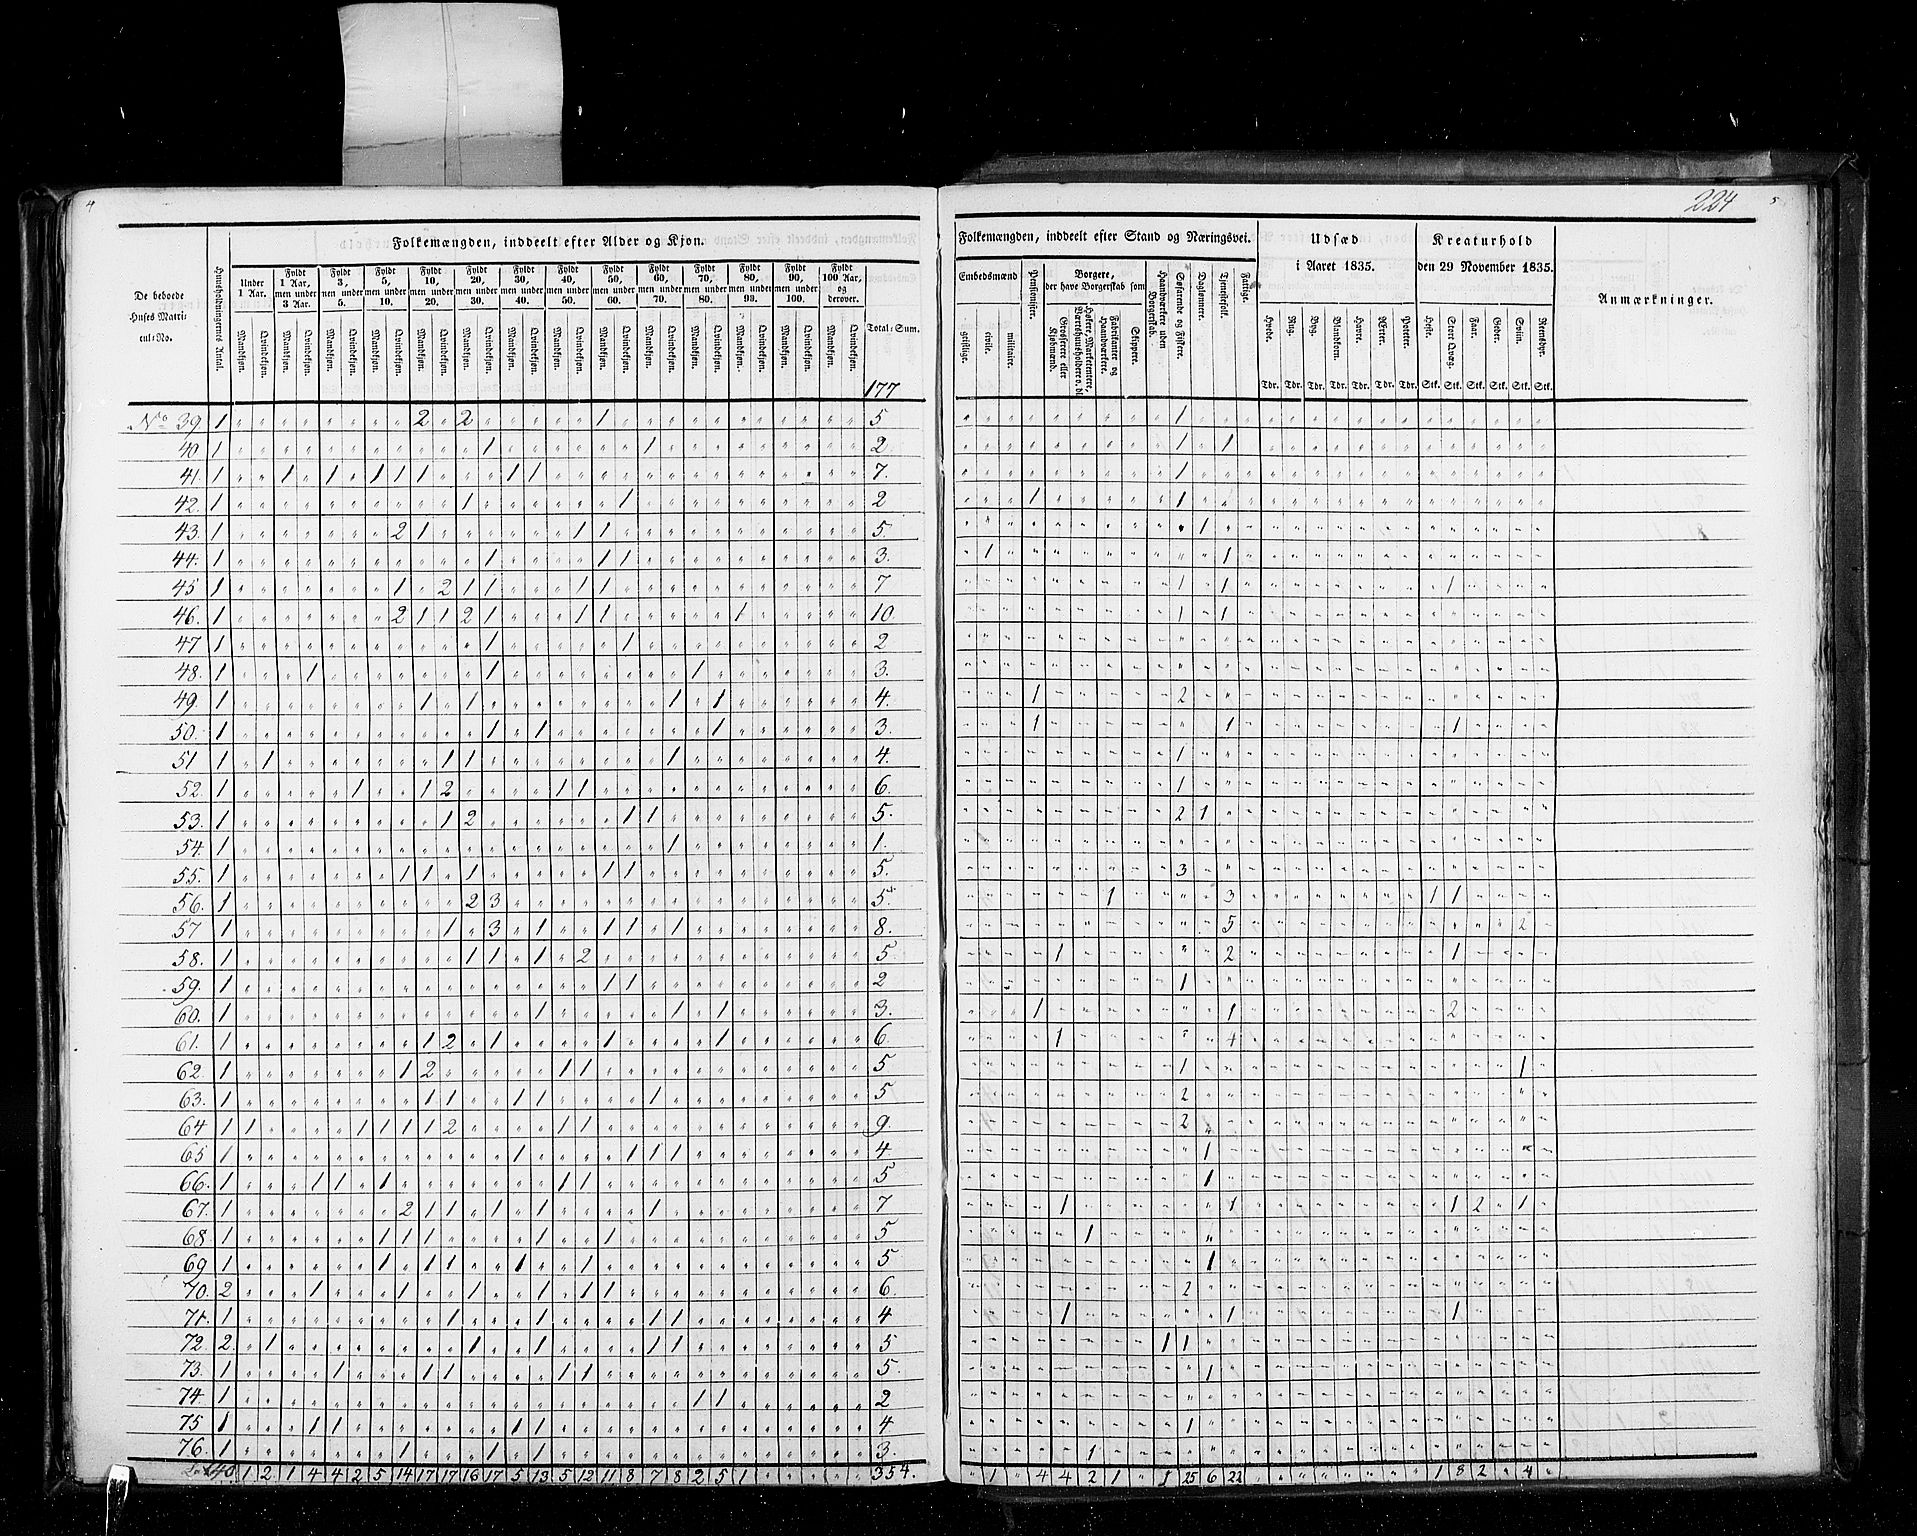 4
224 5
Folkemængden, inddeelt efter Alder og Kjøn.
De beboede Huses Matricul-No.
Huusholdningernes Antal.
Under 1 Aar.
Fyldt 1 Aar, men under 3 Aar.
Fyldt 3, men under 5.
Fyldt 5, men under 10.
Fyldt 10, men under 20.
Fyldt 20, men under 30.
Fyldt 30, men under 40.
Fyldt 40, men under 50.
Fyldt 50, men under 60.
Fyldt 60, men under 70.
Fyldt 70, men under 80.
Fyldt 80, men under 90.
Fyldt 90, men under 100.
Fyldt 100 Aar, og derover.
Mandkjøn. Qvindekjøn.
Total-Sum.
177
Folkemængden, inddeelt efter Stand og Næringsvei.
Embedsmænd
geistlige. civile. militaire.
Pensionister.
Borgere, der have Borgerskab som
Grosserere eller Kjøbmænd.
Fabrikanter og Haandværkere.
Skippere.
Haandværkere uden Borgerskab.
Søfarende og Fiskere.
Daglønnere.
Tjenestefolk.
Fattige.
Udsæd i Aaret 1835.
Hvede. Rug. Byg. Blandkorn. Havre. Ærter. Poteter.
Tdr. Tdr. Tdr. Tdr. Tdr. Tdr. Tdr.
Kreaturhold den 29 November 1835.
Heste. Stort Qvæg. Faar. Geder. Sviin. Reensdyr.
Stk. Stk. Stk. Stk. Stk. Stk.
Anmærkninger.
No 39 1 2 2 1 5 1
40 1 1 1 2 1 1
41. 1 1 1 1 1 1 1 1 7. 1
42. 1 1 1 2 1 1
43. 1 2 1 1 1 5. 1
44. 1 1 1 1 3. 1 1
45 1 1 2 1 1 1 1 7 1 1 1
46. 1 2 1 1 2 1 1 1 1 10. 1 1
47 1 1 1 2
48. 1 1 1 1 3.
49. 1 1 1 1 1 4. 1 2
50. 1 1 1 1 3. 1 1 1
51 1 1 1 1 1 4. 1
52. 1 1 1 2 1 1 6. 1
53. 1 1 2 1 1 5. 2 1
54. 1 1 1.
55. 1 1 1 1 1 1 5. 3
56. 1 2 3 5. 1 3 1 1
57 1 1 3 1 1 1 1 8. 5 2
58. 1 1 1 1 2 5 1 2 1
59. 1 1 1 2 1
60. 1 1 1 1 3. 1 1 2
61. 1 1 2 1 1 1 6. 1 4
62. 1 1 2 1 1 5 1 1
63. 1 1 1 1 1 1 5 2
64 1 1 1 1 1 1 1 2 1 1 9. 2
65 1 1 1 1 1 4 1
66. 1 1 1 1 1 1 5 1
67. 1 2 1 1 1 1 1 7 1 1 1 2 1
68. 1 1 1 1 1 1 5 1
69 1 1 1 1 1 1 5 1
70. 2 1 1 1 1 1 1 6. 2
71. 1 1 1 1 1 4 1 1 1
72. 2. 1 1 1 1 1 5 1 1
73. 1 1 1 1 1 1 5. 1
74. 1 1 1 2
75 1 1 1 1 1 4 1
76. 1 1 1 1 3. 1
40 1 2 1 4 4 2 5 14 17 17 16 17 5 13 5 12 11 8 7 8 2 5 1 354. 1 4 4 2 1 1 25 6 22 1 8 2 4